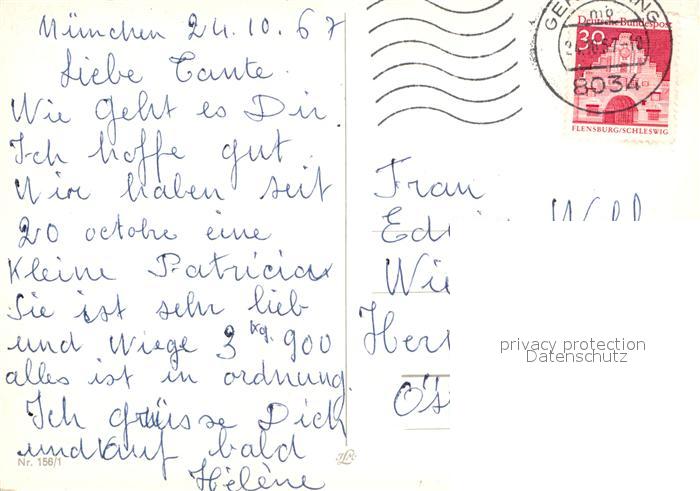 München 24.10.67
Liebe Tante
Wie geht es Dir
Ich hoffe gut.
Wir haben seit
20 octobre eine
kleine Patricia
Sie ist sehr lieb
und Wiege 3 kg. 900
alles ist in ordnung.
Ich grüsse Dich
und auf bald
Hélène
Nr. 156/1
Deutsche Bundespost
30
8034
FLENSBURG/SCHLESWIG
Frau
privacy protection
Datenschutz